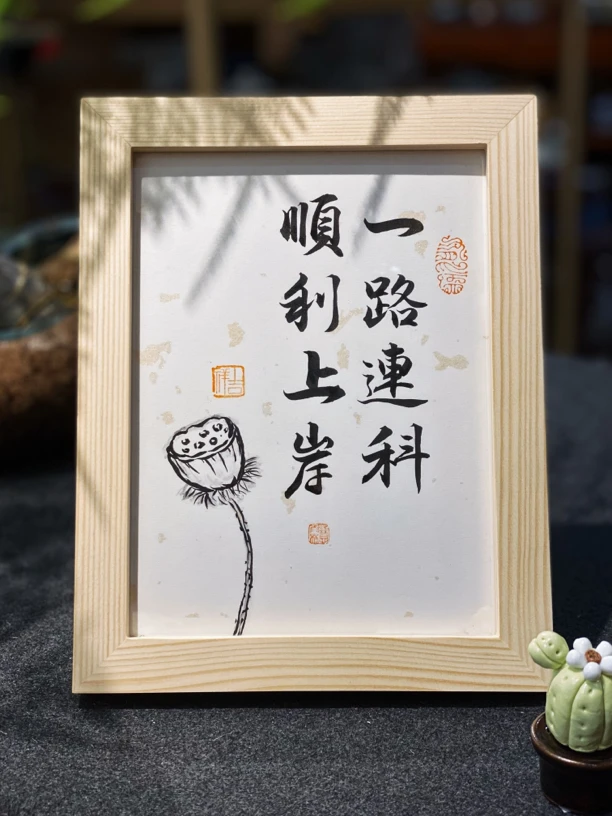 一路連科
順利上岸